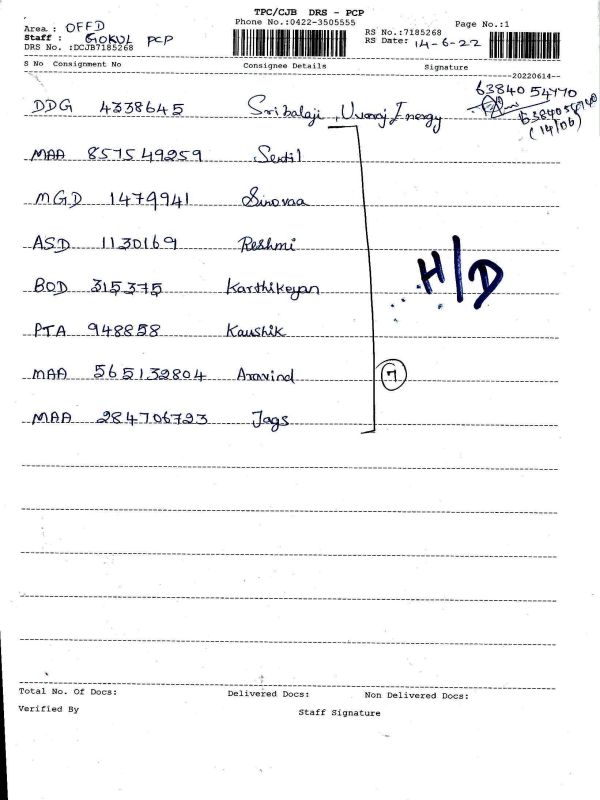 TPC/CJB DRS - PCP
Area : OFFD Phone No.:0422-3505555 Page No.:1
Staff : GOKUL PCP RS No.:7185268
DRS No. :DCJB7185268 RS Date: 14-6-22
S No Consignment No Consignee Details Signature
--20220614--
DDG 4338645 Sribalaji, Uvaraj Energy 63840 54770
(14/06)
MAA 857549259
MGD 1479941
ASD 1130169 Reshmi
BOD 315375 Karthikeyan
H/D
PTA 948858 Kaushik
MAA 565132804 Aravind 7
MAA 284706723 Jags
Total No. Of Docs: Delivered Docs: Non Delivered Docs:
Verified By Staff Signature